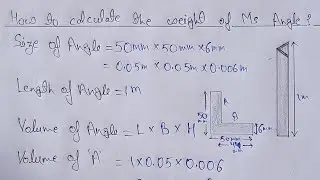 How to calculate the weight of Ms Angle?
Size of Angle = 50mm × 50mm × 6mm
= 0.05m × 0.05m × 0.006m
Length of Angle = 1m
Volume of Angle = L × B × H
Volume of 'A' = 1 × 0.05 × 0.006
A
50
mm
B
6mm
50mm
1m